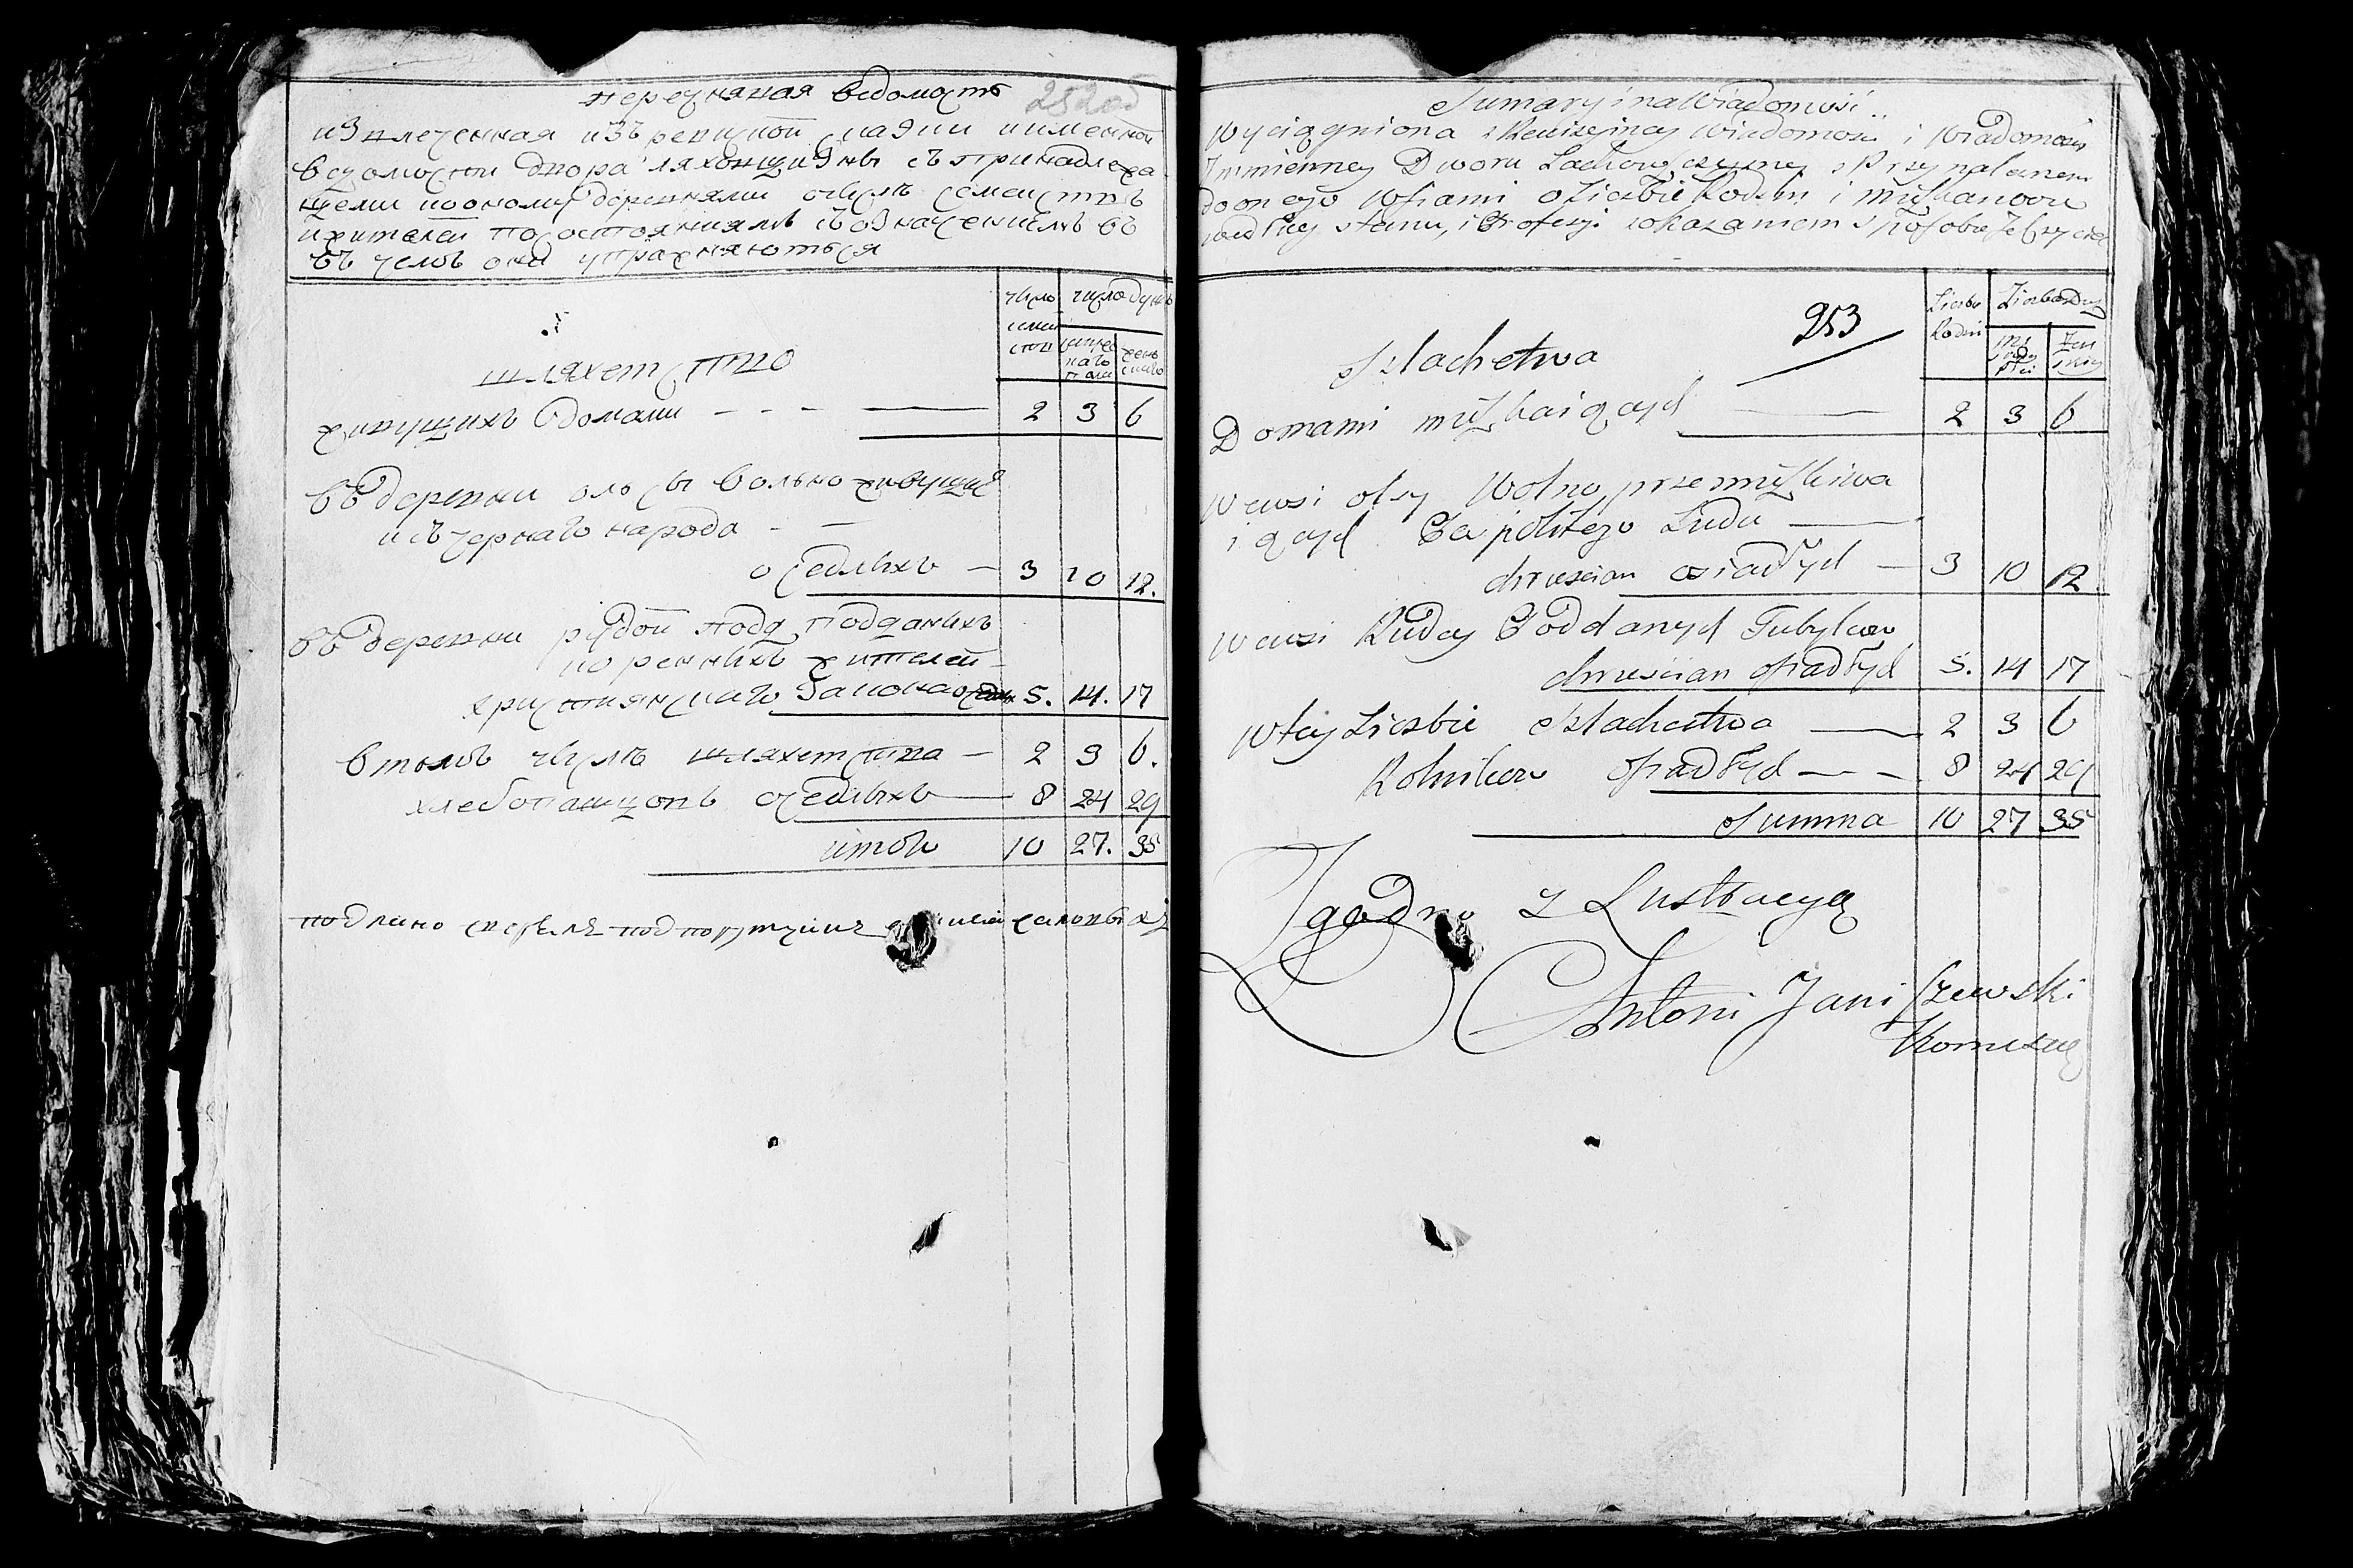 перечняная ведомость 252об
извлеченная изъ ревизской сказки и именной
ведомости двора Ляховщизны съ принадлежа
щеми коному деревнями очисле семействъ
ижителей посостояниямъ съозначениемъ въ
въ чемъ они упражняються
число семей ством
число душъ
мужескаго пола
женскаго
шляхетство
живущихъ домами - - - — 2 3 6
въ деревни ольсы вольно живущие
изъ чернаго народа - —
оседлыхъ — 3 10 12.
въ деревни рудой подданыхъ
коренныхъ жителей
християнскаго закона оседлых 5. 14. 17
втомъ числе шляхетства — 2 3 6.
хлебопашцовъ оседлыхъ — 8 24 29
итого 10 27. 35
подлино
Sumaryina Wiadomość
Wyciągniona z Rewizyjney Wiadomości i Wiadomości
Immienney Dworu Lachowszczyzny z Przynależnemi
do onego Wsiami o Liczbie Rodzin i miszkancow
według stanu, i Profesji z okazaniem sposobu ich życia
253
Liczba Rodzin
Liczba Dusz
Męskiey płci
Żeńskiey
Szlachetwa
Domami miszkaiących — 2 3 6
w wsi Olsy Wolno przemiszkiwa
iących Pospolitego Ludu —
chrzescian osiadłych — 3 10 12.
w wsi Rudey Poddanych Tubylcow
chrzescian osiadłych 5. 14 17
w tey Liczbie Szlachetwa — 2 3 6
Rolnikow osiadłych — — 8 24 29
Summa 10 27 35
Zgodno z Lustracyą
Antoni Janiszewski
Komisarz